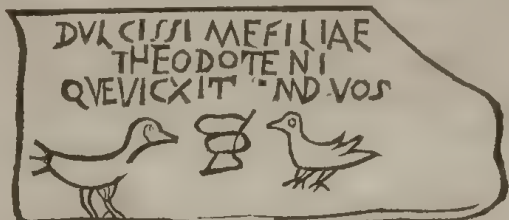 DVLCISSIMEFILIAE
THEODOTENI
QVEVICXIT MDVOS